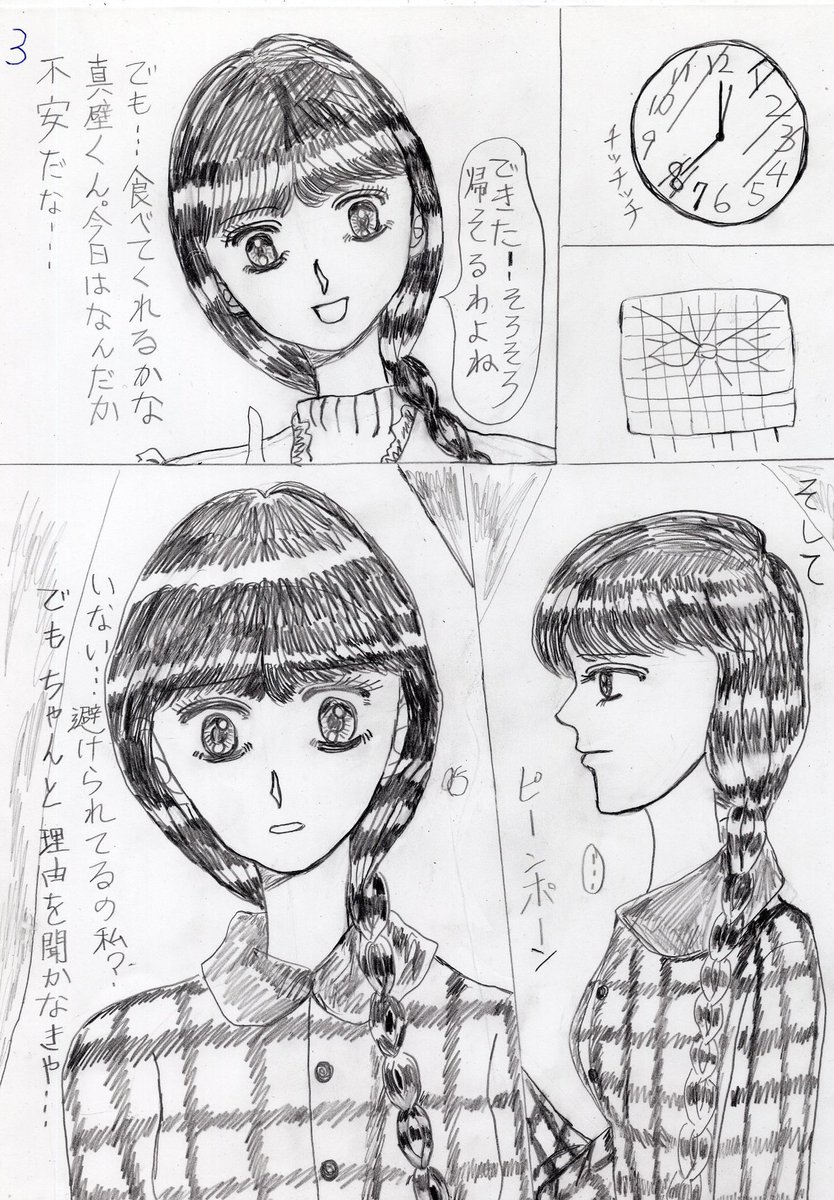 3
12
1
2
3
4
5
6
7
8
9
10
11
チッチッチ
できたーそろそろ
帰そるわよね
でも…食べてくれるかな
真壁くん。今日はなんだか
不安だな…
そして
ピーンポーン
…
いない…避けられてるの私?
でもちゃんと理由を聞かなきゃ…